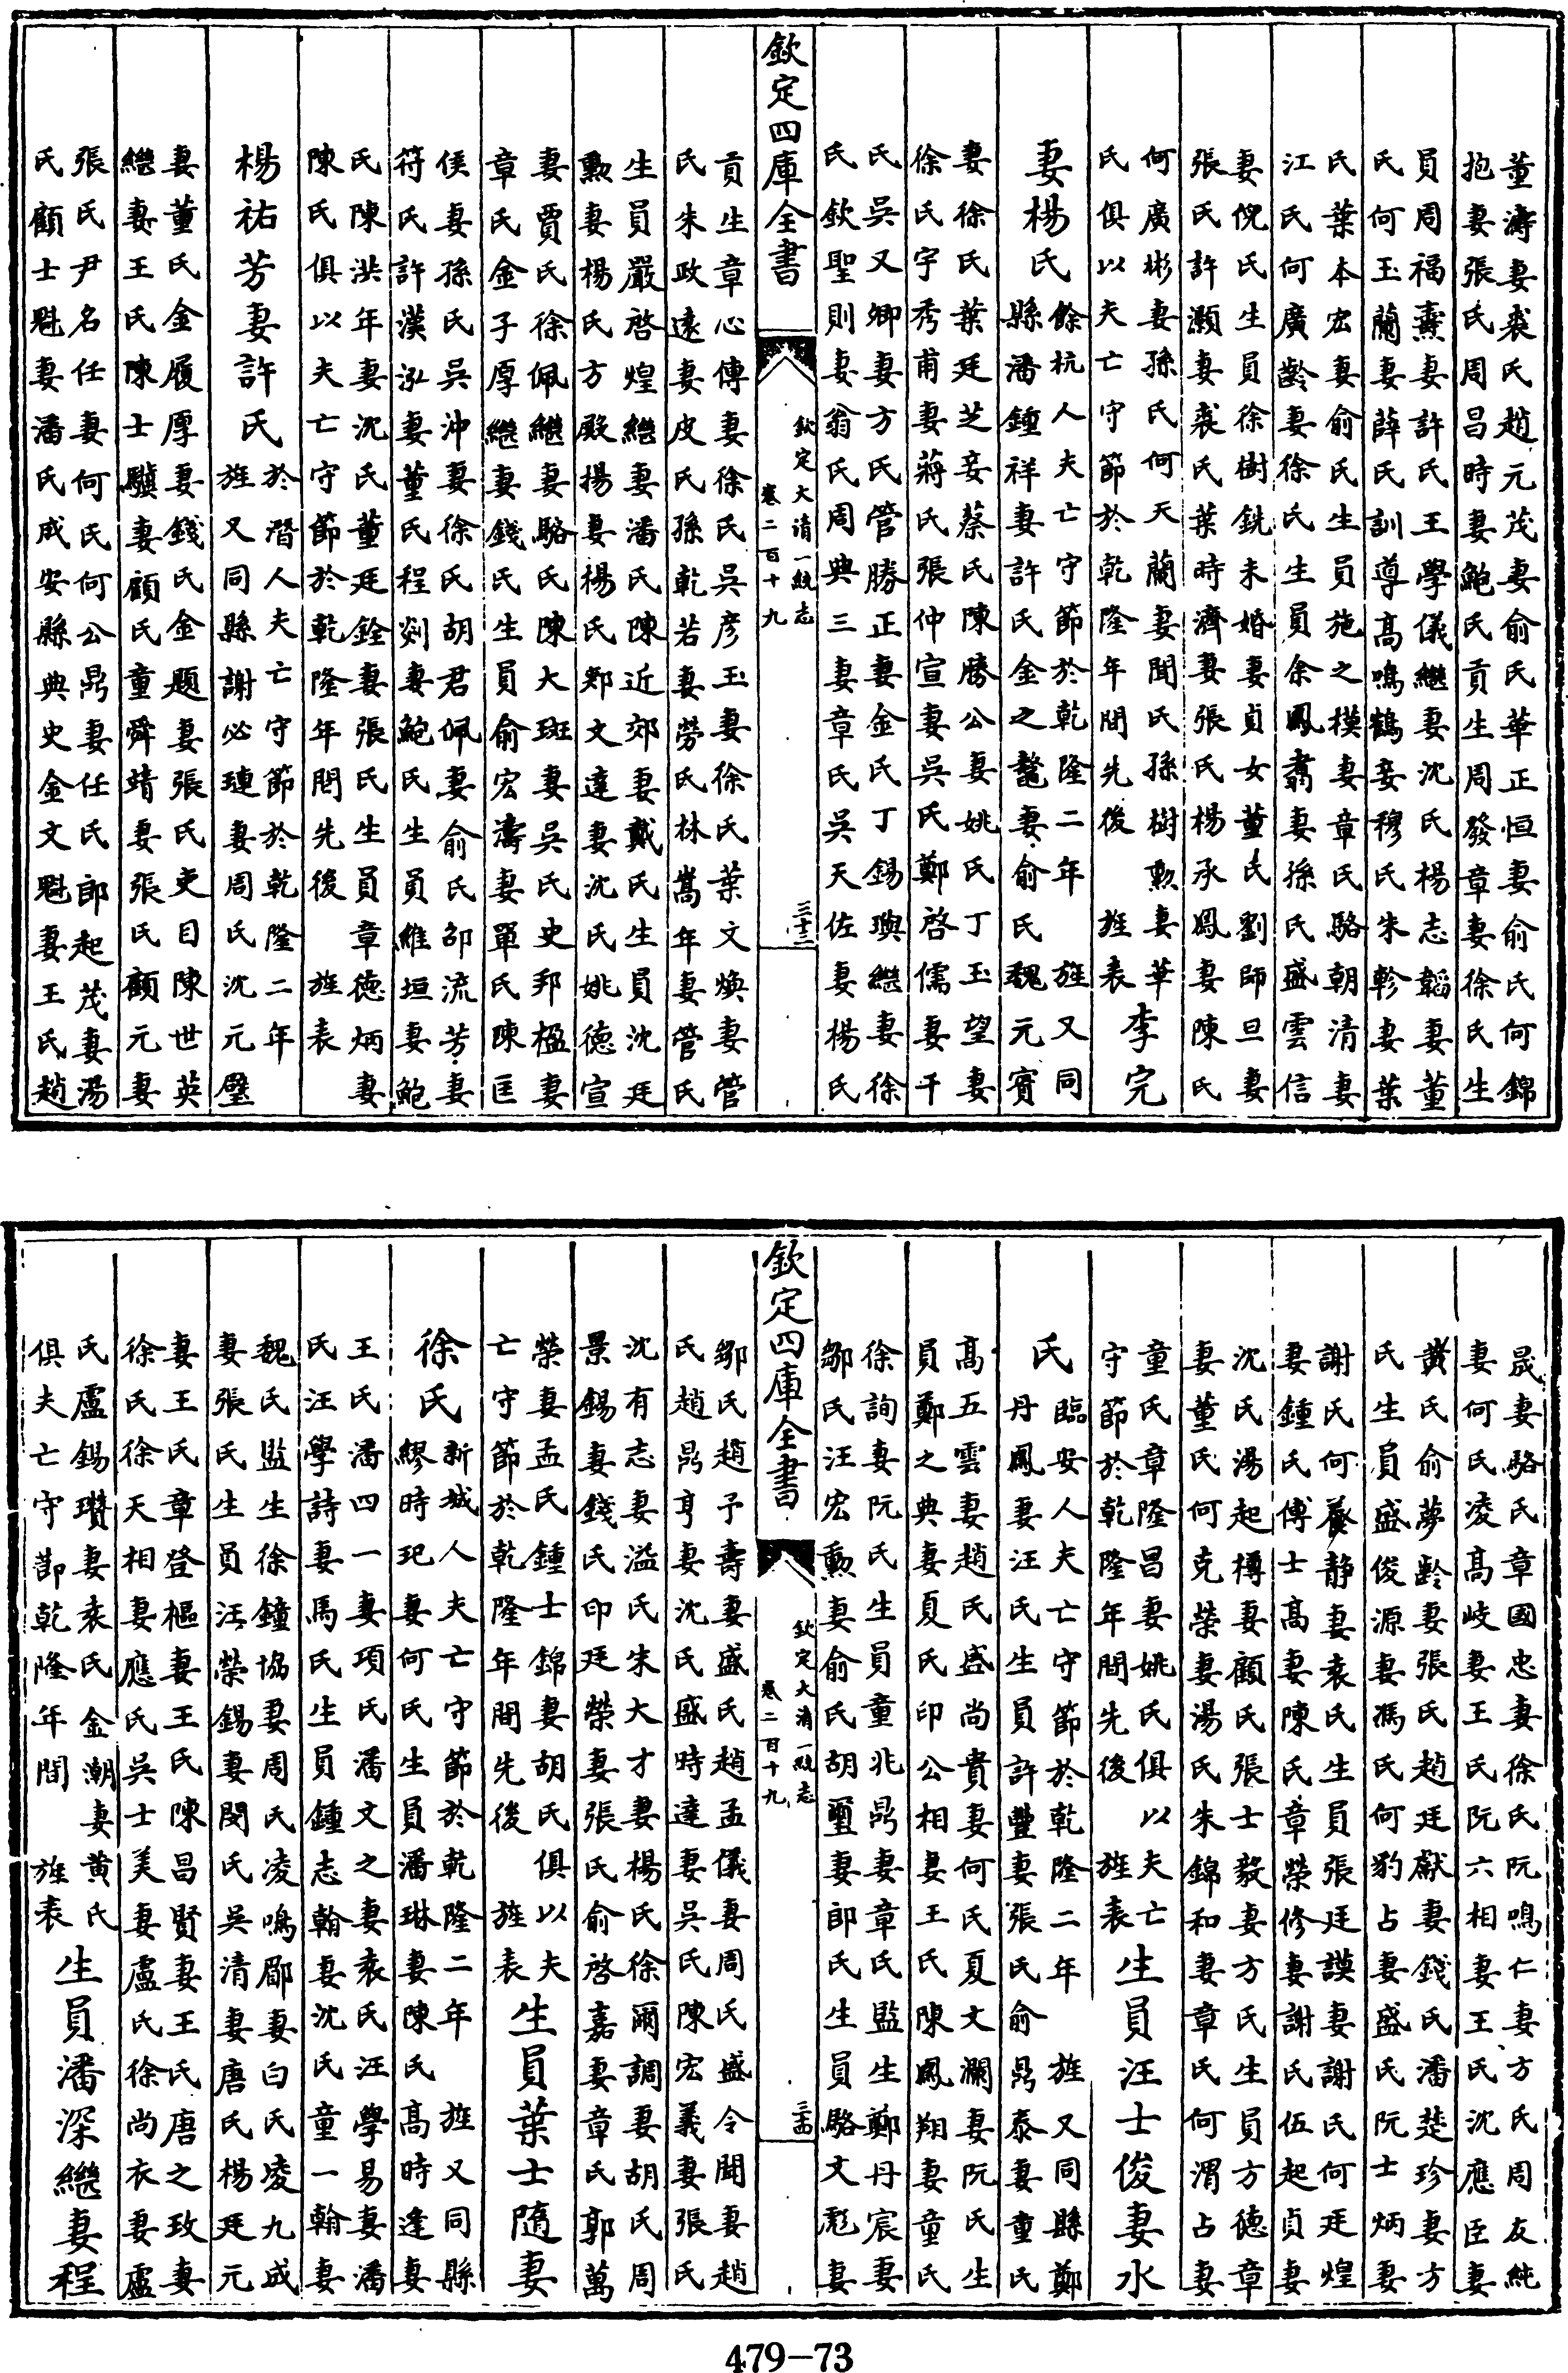 董濤妻裘氏趙元茂妻俞氏華正恒妻俞氏何錦
抱妻張氏周昌時妻鮑氏貢生周發章妻徐氏生
員周福燾妻許氏王學儀繼妻沈氏楊志韜妻董
氏何玉蘭妻薛氏訓導高鳴鶴妾穆氏朱軫妻葉
氏葉本宏妻俞氏生員施之模妻章氏駱朝清妻
江氏何廣齡妻徐氏生員余鳳翥妻孫氏盛雲信
妻倪氏生員徐樹銑未婚妻貞女董氏劉師旦妻
張氏許灝妻裘氏葉時濟妻張氏楊承鳳妻陳氏
何廣彬妻孫氏何天蘭妻聞氏孫樹勲妻華
氏俱以夫亡守節於乾隆年間先後旌表
李完
妻楊氏
餘杭人夫亡守節於乾隆二年旌又同
縣潘鍾祥妻許氏金之鼇妻俞氏魏元賓
妻徐氏葉廷芝妾蔡氏陳勝公妻姚氏丁玉望妻
徐氏宇秀甫妻蔣氏張仲宣妻吳氏鄭啓儒妻干
氏吳又卿妻方氏管勝正妻金氏丁錫璵繼妻徐
氏欽聖則妻翁氏周典三妻章氏吳天佐妻楊氏
欽定四庫全書
欽定大清一統志
卷二百十九
三十三
貢生章心傳妻徐氏吳彥玉妻徐氏葉文煥妻管
氏朱政遠妻皮氏孫乾若妻勞氏林嵩年妻管氏
生員嚴啓煌繼妻潘氏陳近郊妻戴氏生員沈廷
勲妻楊氏方殿揚妻楊氏郟文達妻沈氏姚德宣
妻賈氏徐佩繼妻駱氏陳大斑妻吳氏史邦楹妻
章氏金子厚繼妻錢氏生員俞宏濤妻單氏陳匡
侯妻孫氏吳沖妻徐氏胡君佩妻俞氏邵流芳妻
符氏許漢泓妻董氏程剡妻鮑氏生員維垣妻鮑
氏陳洪年妻沈氏董廷銓妻張氏生員章德炳妻
陳氏俱以夫亡守節於乾隆年間先後旌表
楊祐芳妻許氏
於潛人夫亡守節於乾隆二年
旌又同縣謝必璉妻周氏沈元璧
妻董氏金履厚妻錢氏金題妻張氏吏目陳世英
繼妻王氏陳士驥妻顧氏童舜靖妻張氏顧元妻
張氏尹名任妻何氏何公鼎妻任氏郎起茂妻湯
氏顧士魁妻潘氏成安縣典史金文魁妻王氏趙
晟妻駱氏章國忠妻徐氏阮鳴仁妻方氏周友純
妻何氏凌高岐妻王氏阮六相妻王氏沈應臣妻
黃氏俞夢齡妻張氏趙廷獻妻錢氏潘楚珍妻方
氏生員盛俊源妻馮氏何豹占妻盛氏阮士炳妻
謝氏何養靜妻袁氏生員張廷謨妻謝氏何廷煌
妻鍾氏傅士高妻陳氏章榮修妻謝氏伍起貞妻
沈氏湯起樽妻顧氏張士毅妻方氏生員方德章
妻董氏何克榮妻湯氏朱錦和妻章氏何渭占妻
童氏章隆昌妻姚氏俱以夫亡
守節於乾隆年間先後旌表
生員汪士俊妻水
氏
臨安人夫亡守節於乾隆二年旌又同縣鄭
丹鳳妻汪氏生員許豐妻張氏俞鼎泰妻童氏
高五雲妻趙氏盛尚貴妻何氏夏文瀾妻阮氏生
員鄭之典妻夏氏印公相妻王氏陳鳳翔妻童氏
徐詢妻阮氏生員童兆鼎妻章氏監生鄭丹宸妻
鄒氏汪宏勲妻俞氏胡璽妻郎氏生員駱文彪妻
欽定四庫全書
欽定大清一統志
卷二百十九
三十四
鄒氏趙予壽妻盛氏趙孟儀妻周氏盛令聞妻趙
氏趙鼎亨妻沈氏盛時達妻吳氏陳宏義妻張氏
沈有志妻溢氏朱大才妻楊氏徐爾調妻胡氏周
景錫妻錢氏印廷榮妻張氏俞啓嘉妻章氏郭萬
榮妻孟氏鍾士錦妻胡氏俱以夫
亡守節於乾隆年間先後旌表
生員葉士隨妻
徐氏
新城人夫亡守節於乾隆二年旌又同縣
繆時玘妻何氏生員潘琳妻陳氏高時逢妻
王氏潘四一妻項氏潘文之妻袁氏汪學易妻潘
氏汪學詩妻馬氏生員鍾志翰妻沈氏童一翰妻
魏氏監生徐鐘協妻周氏凌鳴郿妻白氏凌九成
妻張氏生員汪榮錫妻閔氏吳清妻唐氏楊廷元
妻王氏章登樞妻王氏陳昌賢妻王氏唐之玫妻
徐氏徐天相妻應氏吳士美妻盧氏徐尚衣妻盧
氏盧錫瓚妻袁氏金潮妻黃氏
俱夫亡守節乾隆年間旌表
生員潘深繼妻程
479-73